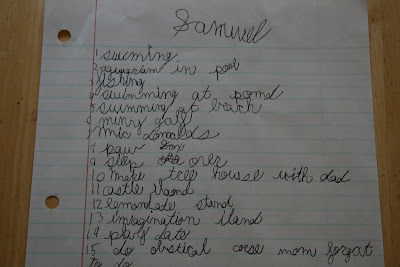 Samuel
1 swiming
2 in pool
3 fishing
4 swimming at pond
5 swimming at beach
6 miny golf
7 mic donalds
paw Sox
9 slep over
10 make tree house with dad
11 castle iland
12 lemonade stand
13 imagination iland
14 play date
15 do obstical corse mom forgat
to do